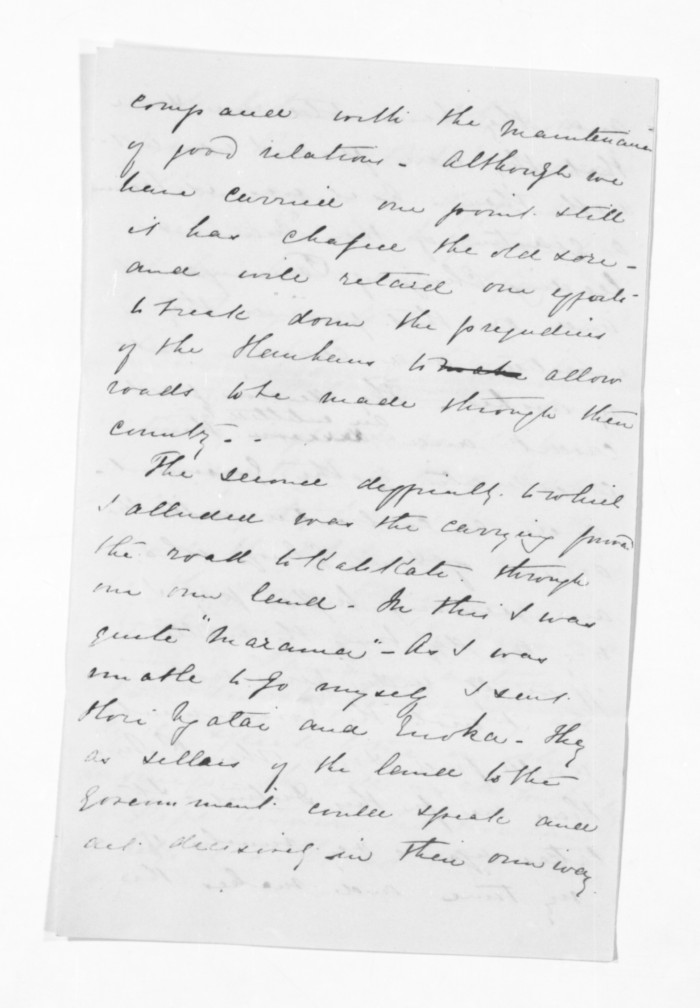 compared with the maintenance
of good relations - Although we
have carried our point still
it has chafed the old sore -
and will retard our efforts
to break down the prejudices
of the Hauhaus to allow
roads to be made through their
country - .
The second difficulty to which
I alluded was the carrying forwd
the road to KatiKati through
our own land - In this I was
quite "marama" - As I was
unable to go myself I sent
Hori Ngatai and Enoka - They
as sellers of the land to the
Government could speak and
act decisively in their own way